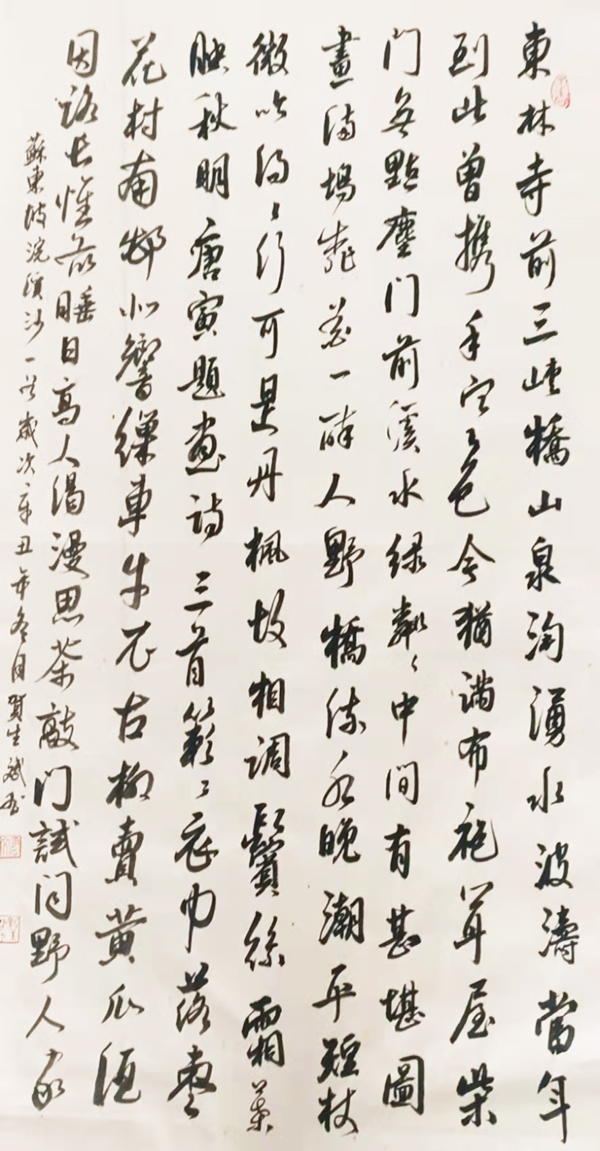 東林寺前三峽橋山泉洶湧水波濤當年
到此曾携手翠色今猶满布袍茅屋柴
门無點塵门前溪水绿粼〻中間有甚堪圖
畫满塢桃花一醉人野橋流水晚潮平短杖
微吟得〻行可是丹楓故相調鬢絲霜葉
映秋明唐寅題画诗三首簌〻衣巾落棗
花村南邨北響繰車牛衣古柳賣黄瓜酒
因路长惟欲睡日高人渴漫思茶敲门試问野人家
蘇東坡浣溪沙一首歲次辛丑年冬月賀生斌书